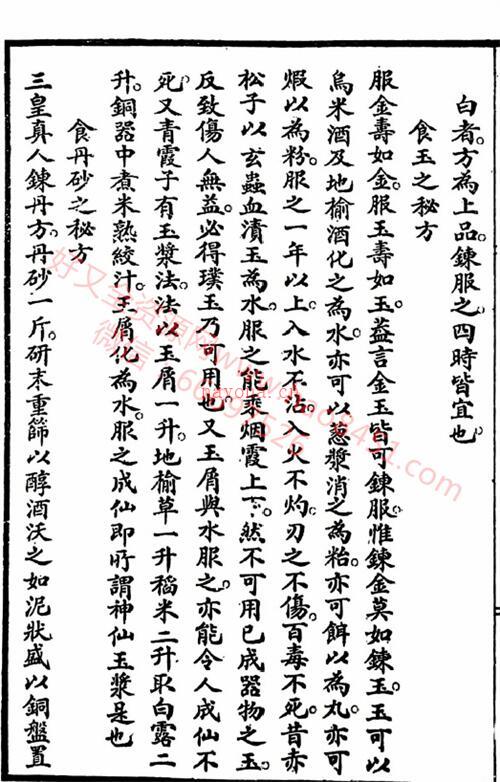 白者。方為上品。鍊服之。四時皆宜也
食玉之秘方
服金壽如金。服玉壽如玉。蓋言金玉皆可鍊服。惟鍊金莫如鍊玉。玉可以
烏米酒及地榆酒化之為水。亦可以葱漿消之為粭。亦可餌以為丸。亦可
煆以為粉。服之一年以上。入水不沾。入火不灼。刃之不傷。百毒不死。昔赤
松子以玄蟲血漬玉為水服之。能乘烟霞上下。然不可用已成器物之玉。
反致傷人無益。必得璞玉。乃可用也。又玉屑與水服之。亦能令人成仙不
死。又青霞子有玉漿法。法以玉屑一升。地榆草一升。稻米二升。取白露二
升。銅器中煮米熟絞汁。玉屑化為水。服之成仙。即所謂神仙玉漿是也
食丹砂之秘方
三皇真人鍊丹方。丹砂一斤。研末重篩。以醇酒沃之如泥狀。盛以銅盤。置
好又全资源网www.hao8491.com
微信：
nayona.cn